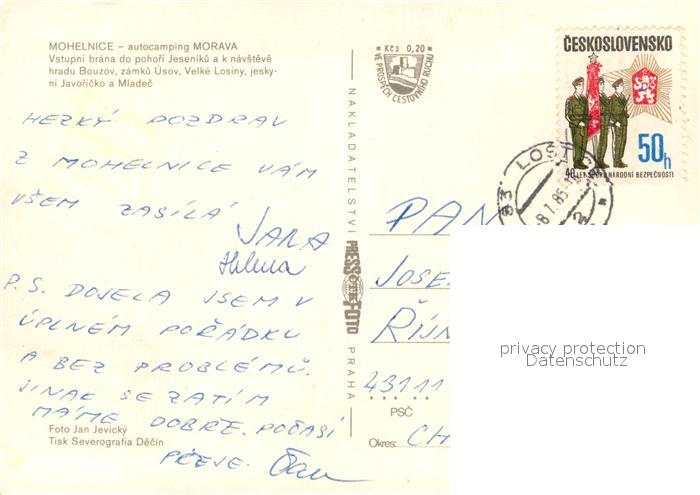 MOHELNICE – autocamping MORAVA
Vstupní brána do pohoří Jeseníků a k návštěvě
hradu Bouzov, zámků Úsov, Velké Losiny, jesky-
ní Javoříčko a Mladeč
HEZKÝ POZDRAV
Z MOHELNICE VÁM
VŠEM ZASÍLÁ
JANA
Helena
P.S. DOJELA JSEM V
ÚPLNÉM POŘÁDKU
A BEZ PROBLÉMŮ.
JINAK SE ZATÍM
MÁME DOBŘE. POČASÍ
PŘEJE.
Foto Jan Jevický
Tisk Severografia Děčín
Kčs 0,20
VE PROSPĚCH CESTOVNÍHO RUCHU
NAKLADATELSTVÍ PRESSFOTO PRAHA
ČESKOSLOVENSKO
50h
40 LET SBORU NÁRODNÍ BEZPEČNOSTI
LOŠT
PAN
JOSE
ŘÍJN
431 11
PSČ
Okres: CH
privacy protection
Datenschutz